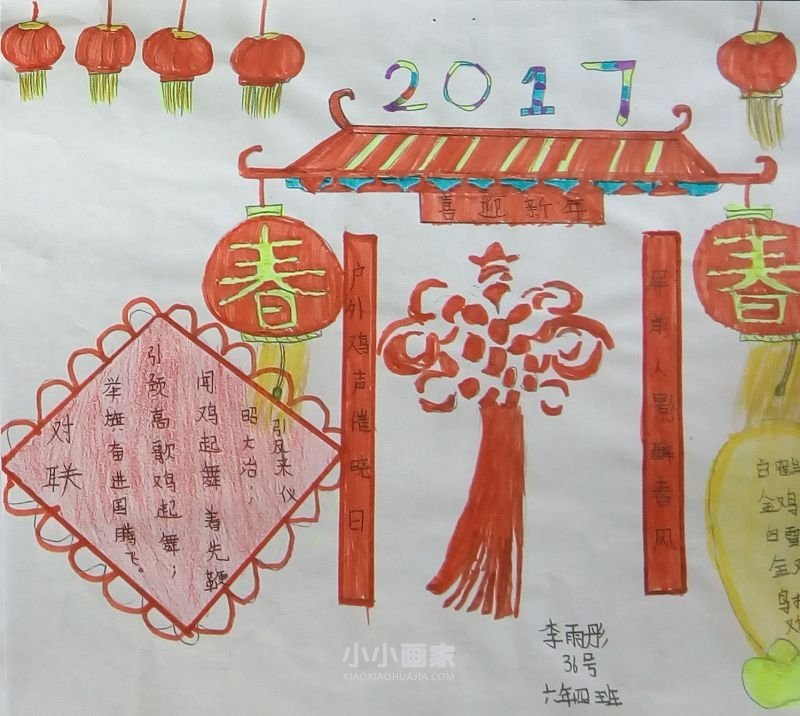 2017
喜迎新年
春
春
户外鸡声催晓日
屏前人影醉春风
对联
举旗奋进国腾飞。
引颈高歌鸡起舞；
闻鸡起舞着先鞭
昭大治，
引凤来仪
白
金鸡
白雪
金
李雨彤
36号
六年四班
小小画家
XIAOXIAOHUAJIA.COM